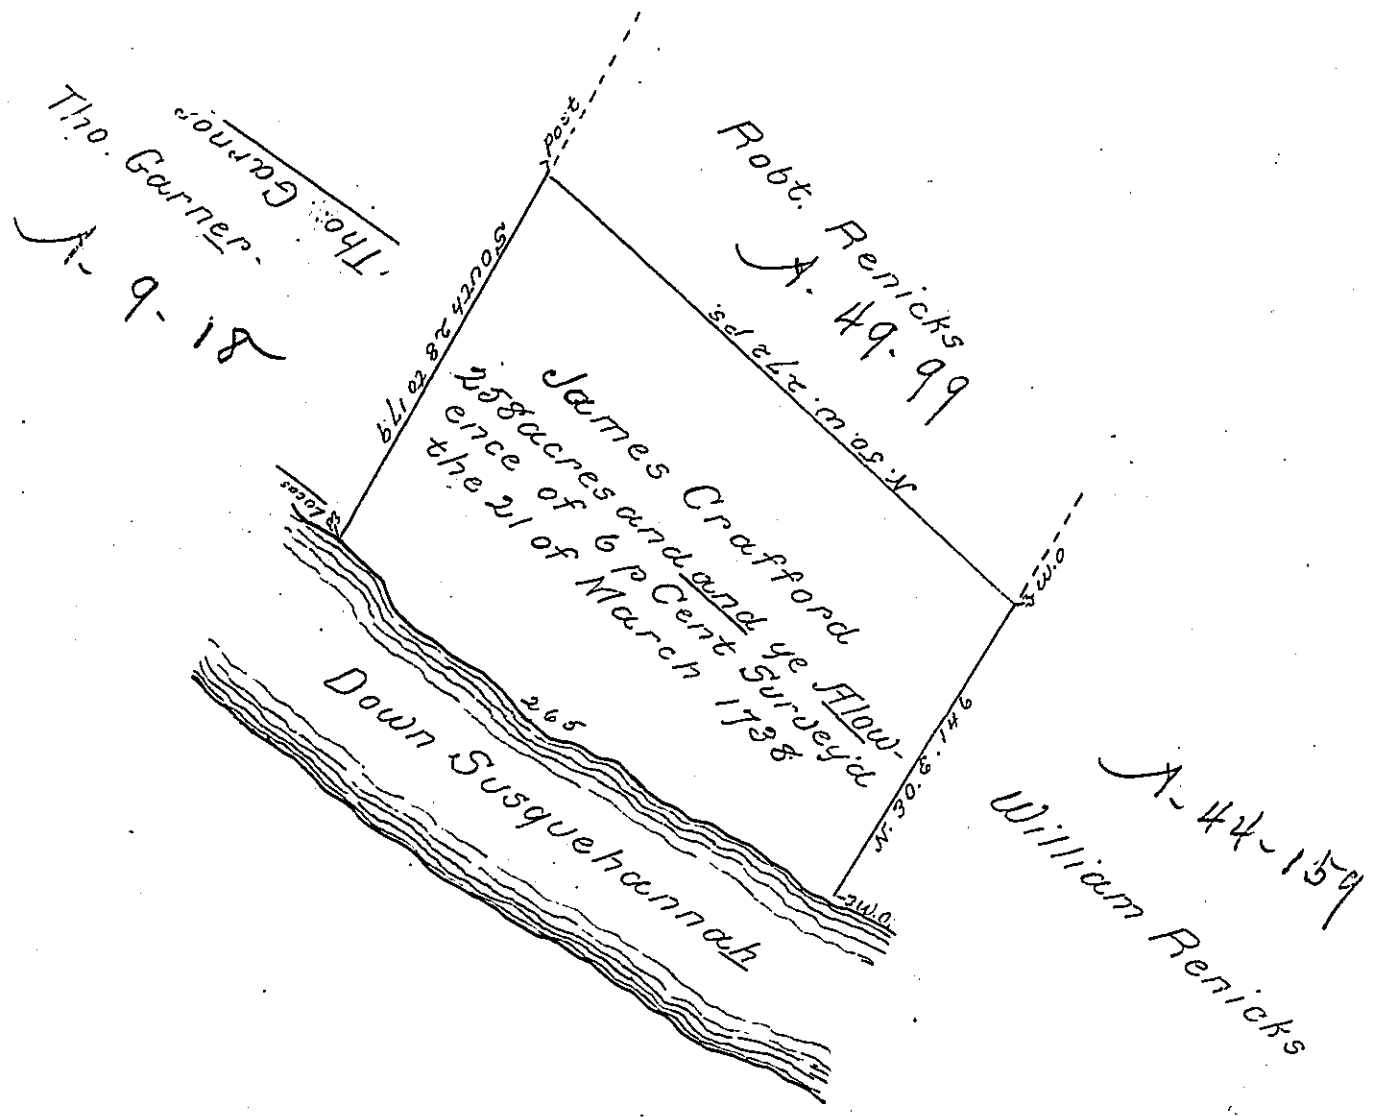 Tho. Garner.
Tho. Garnor
A- 9- 18
post
Robt. Renicks
A- 49- 99
SOUTH 28 to 179
N. 50. W. 272 ps.
James Crafford
258 acres and and ye Alow-
ence of 6 p Cent Survey'd
the 21 of March 1738
Locas
W.O
N. 30. E. 146
265
W.O.
Down Susquehannah
A- 44- 159
William Renicks